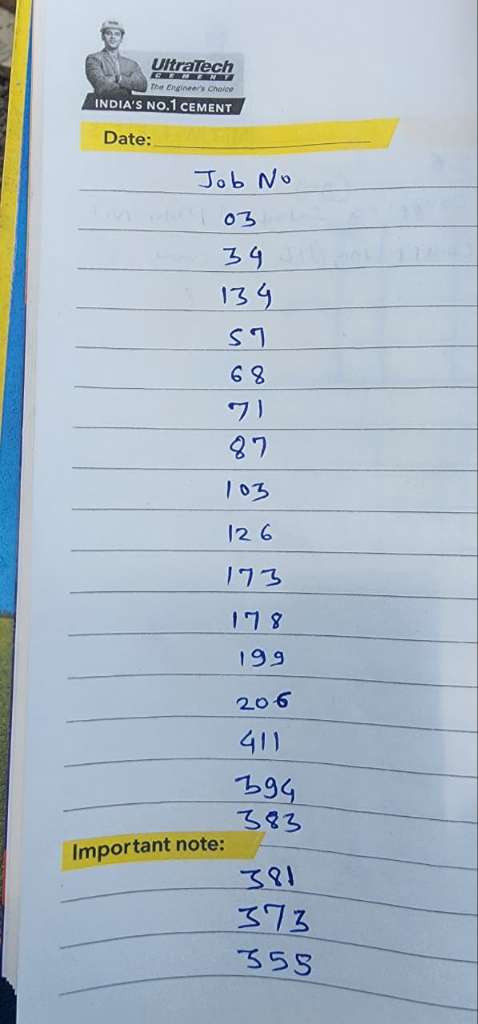 UltraTech
CEMENT
The Engineer's Choice
INDIA'S NO.1 CEMENT
Date:
Job No
03
34
134
57
68
71
87
103
126
173
178
199
206
411
394
383
Important note:
381
373
355